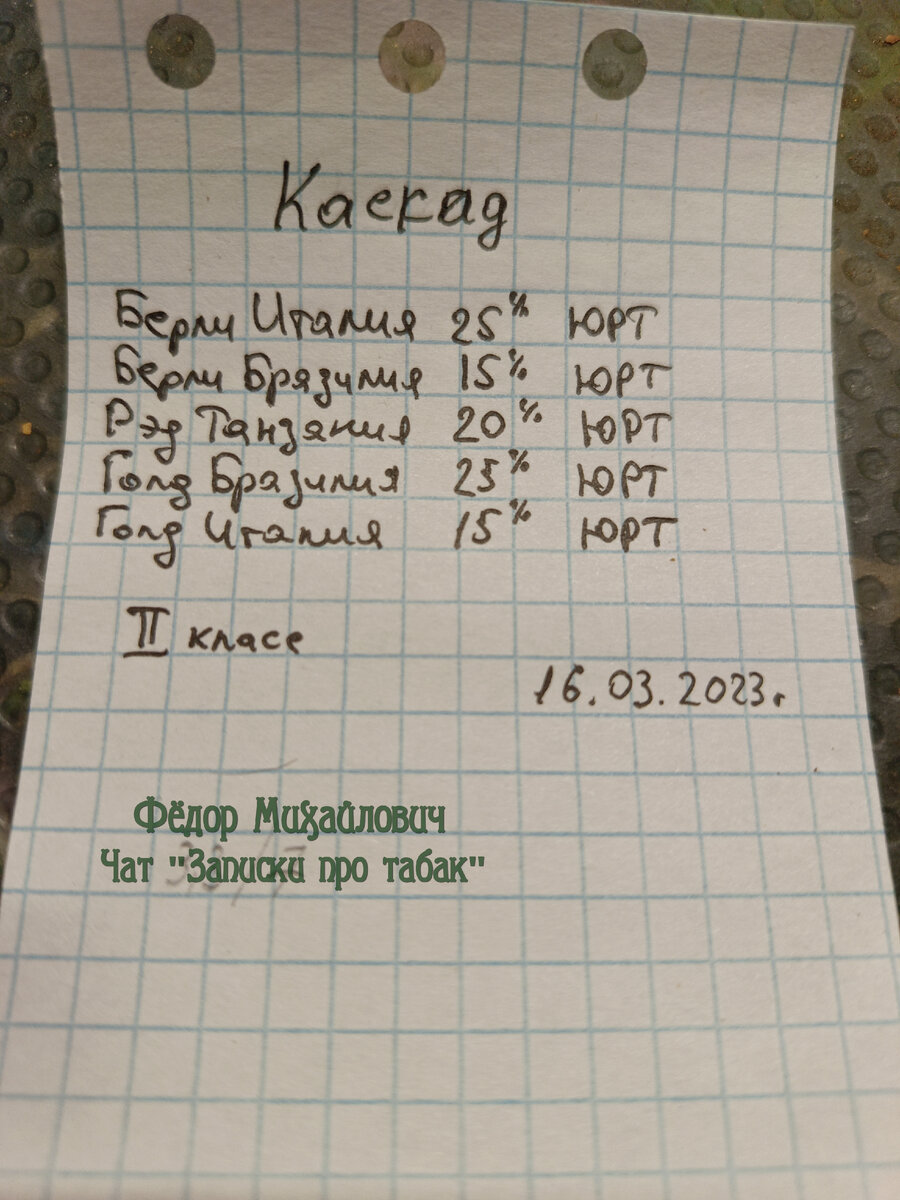 Каскад
Берли Италия 25% ЮРТ
Берли Бразилия 15% ЮРТ
Рэд Танзания 20% ЮРТ
Голд Бразилия 25% ЮРТ
Голд Италия 15% ЮРТ
II класс
16.03.2023г
Фёдор Михайлович
Чат "Записки про табак"